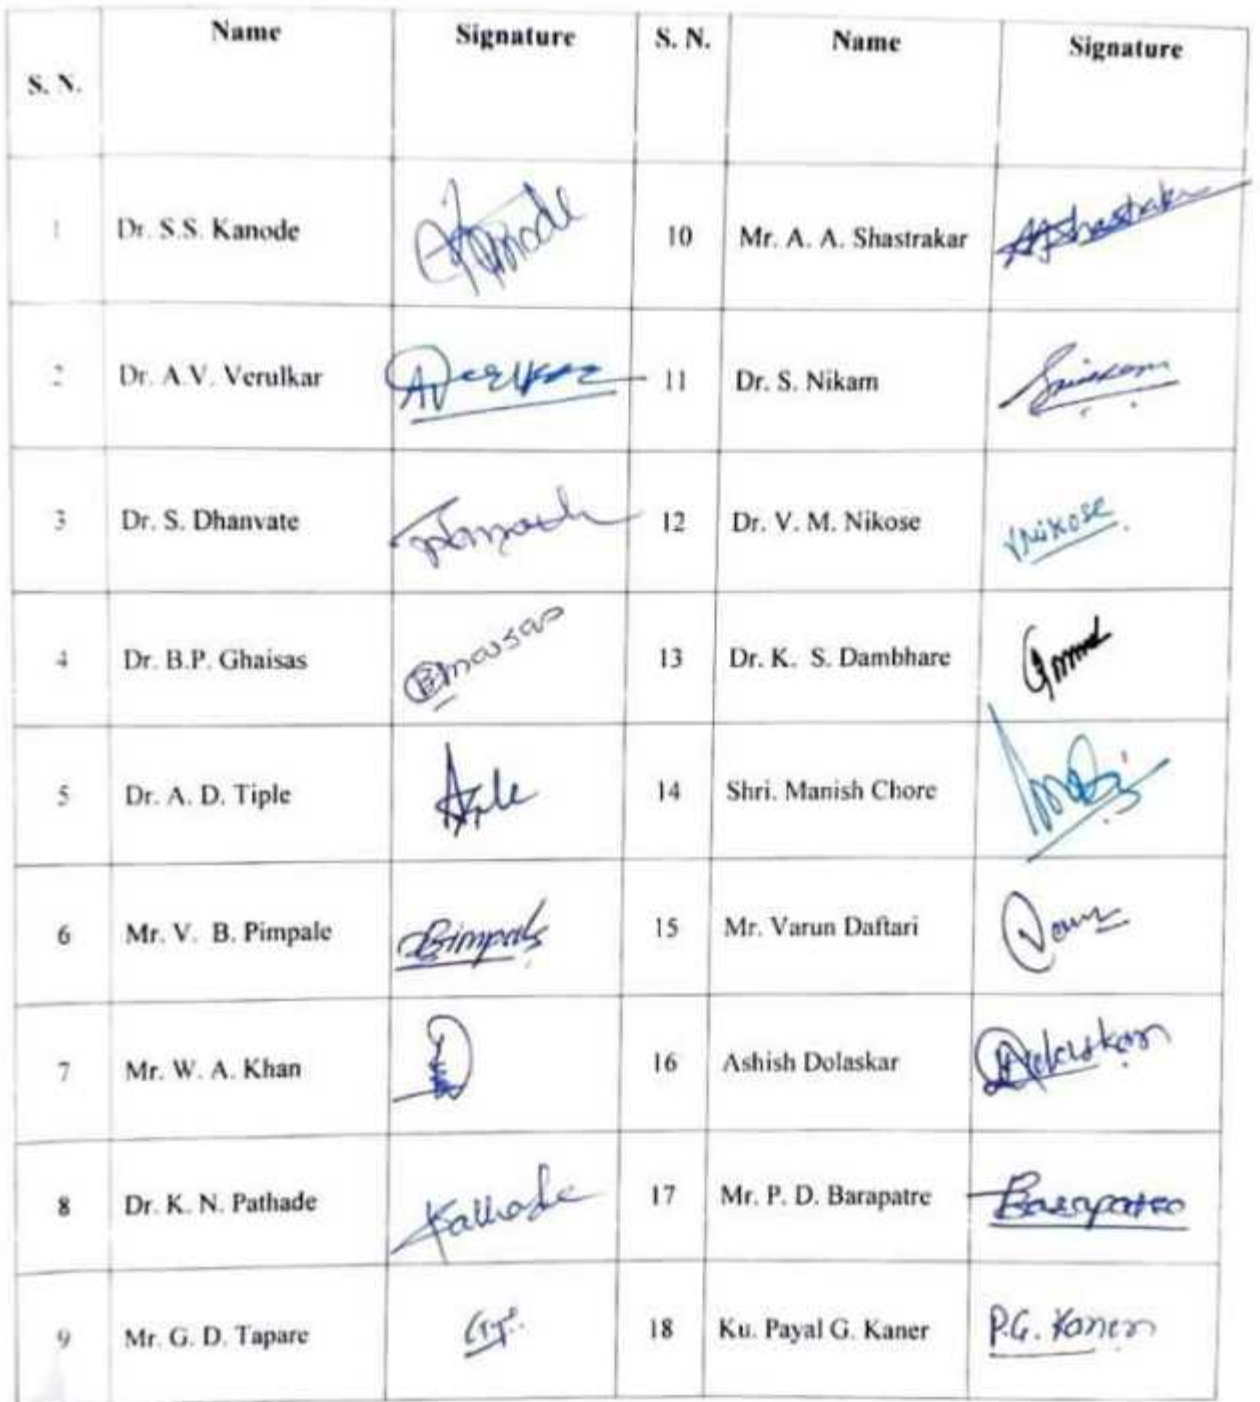 S. N. Name Signature S. N. Name Signature
1 Dr. S.S. Kanode 10 Mr. A. A. Shastrakar
2 Dr. A.V. Verulkar 11 Dr. S. Nikam
3 Dr. S. Dhanvate 12 Dr. V. M. Nikose
4 Dr. B.P. Ghaisas 13 Dr. K. S. Dambhare
5 Dr. A. D. Tiple 14 Shri. Manish Chore
6 Mr. V. B. Pimpale 15 Mr. Varun Daftari
7 Mr. W. A. Khan 16 Ashish Dolaskar
8 Dr. K. N. Pathade 17 Mr. P. D. Barapatre Barapatre
9 Mr. G. D. Tapare 18 Ku. Payal G. Kaner P.G. Kaner